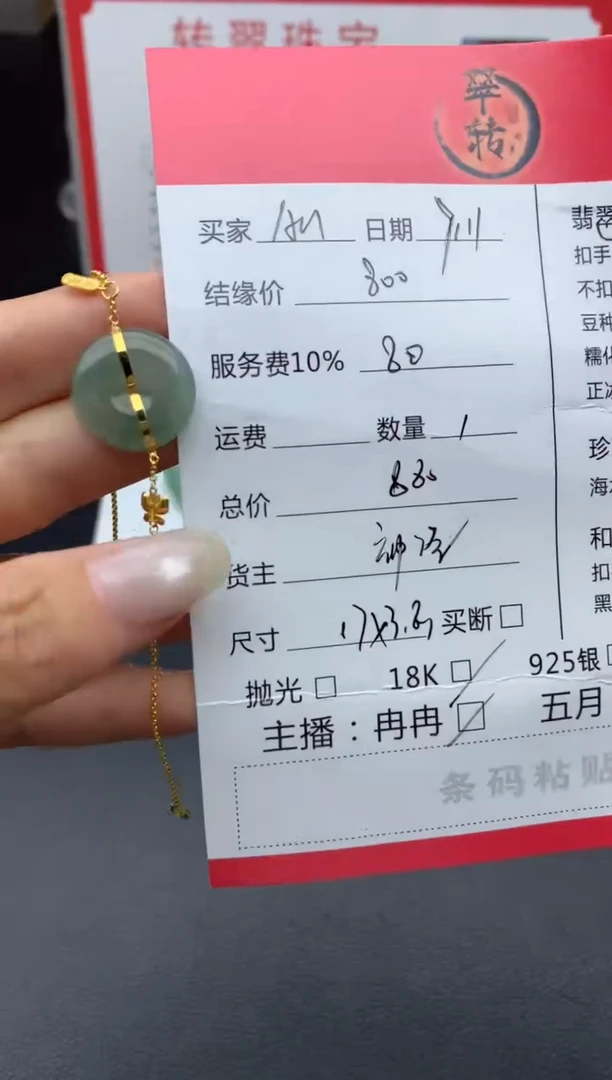 转翠珠宝
翠
转
买家 日期
结缘价 800
服务费10% 80
运费 数量 1
总价 880
货主
尺寸 17X3.5 买断 □
抛光 □ 18K □ 925银
主播：冉冉 □ 五月
条码粘贴
翡翠
扣手
不扣
豆种
糯化
正冰
珍
海水
和
扣
黑